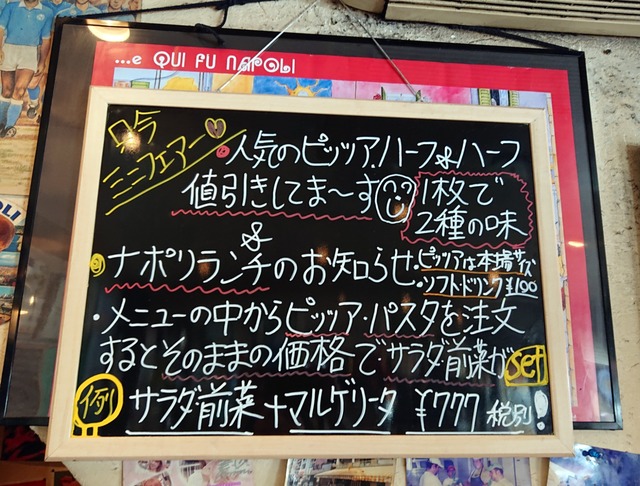 ...e QUI FU NAPOLI
只今
ミニフェアー
・人気のピッツァ、ハーフ&ハーフ
値引きしてま〜す
1枚で
2種の味
&
◎ナポリランチのお知らせ
・ピッツアは本場サイズ
・ソフトドリンク¥100
・メニューの中からピッツァ・パスタを注文
するとそのままの価格でサラダ前菜がset
例 サラダ前菜+マルゲリータ ¥777 税別!